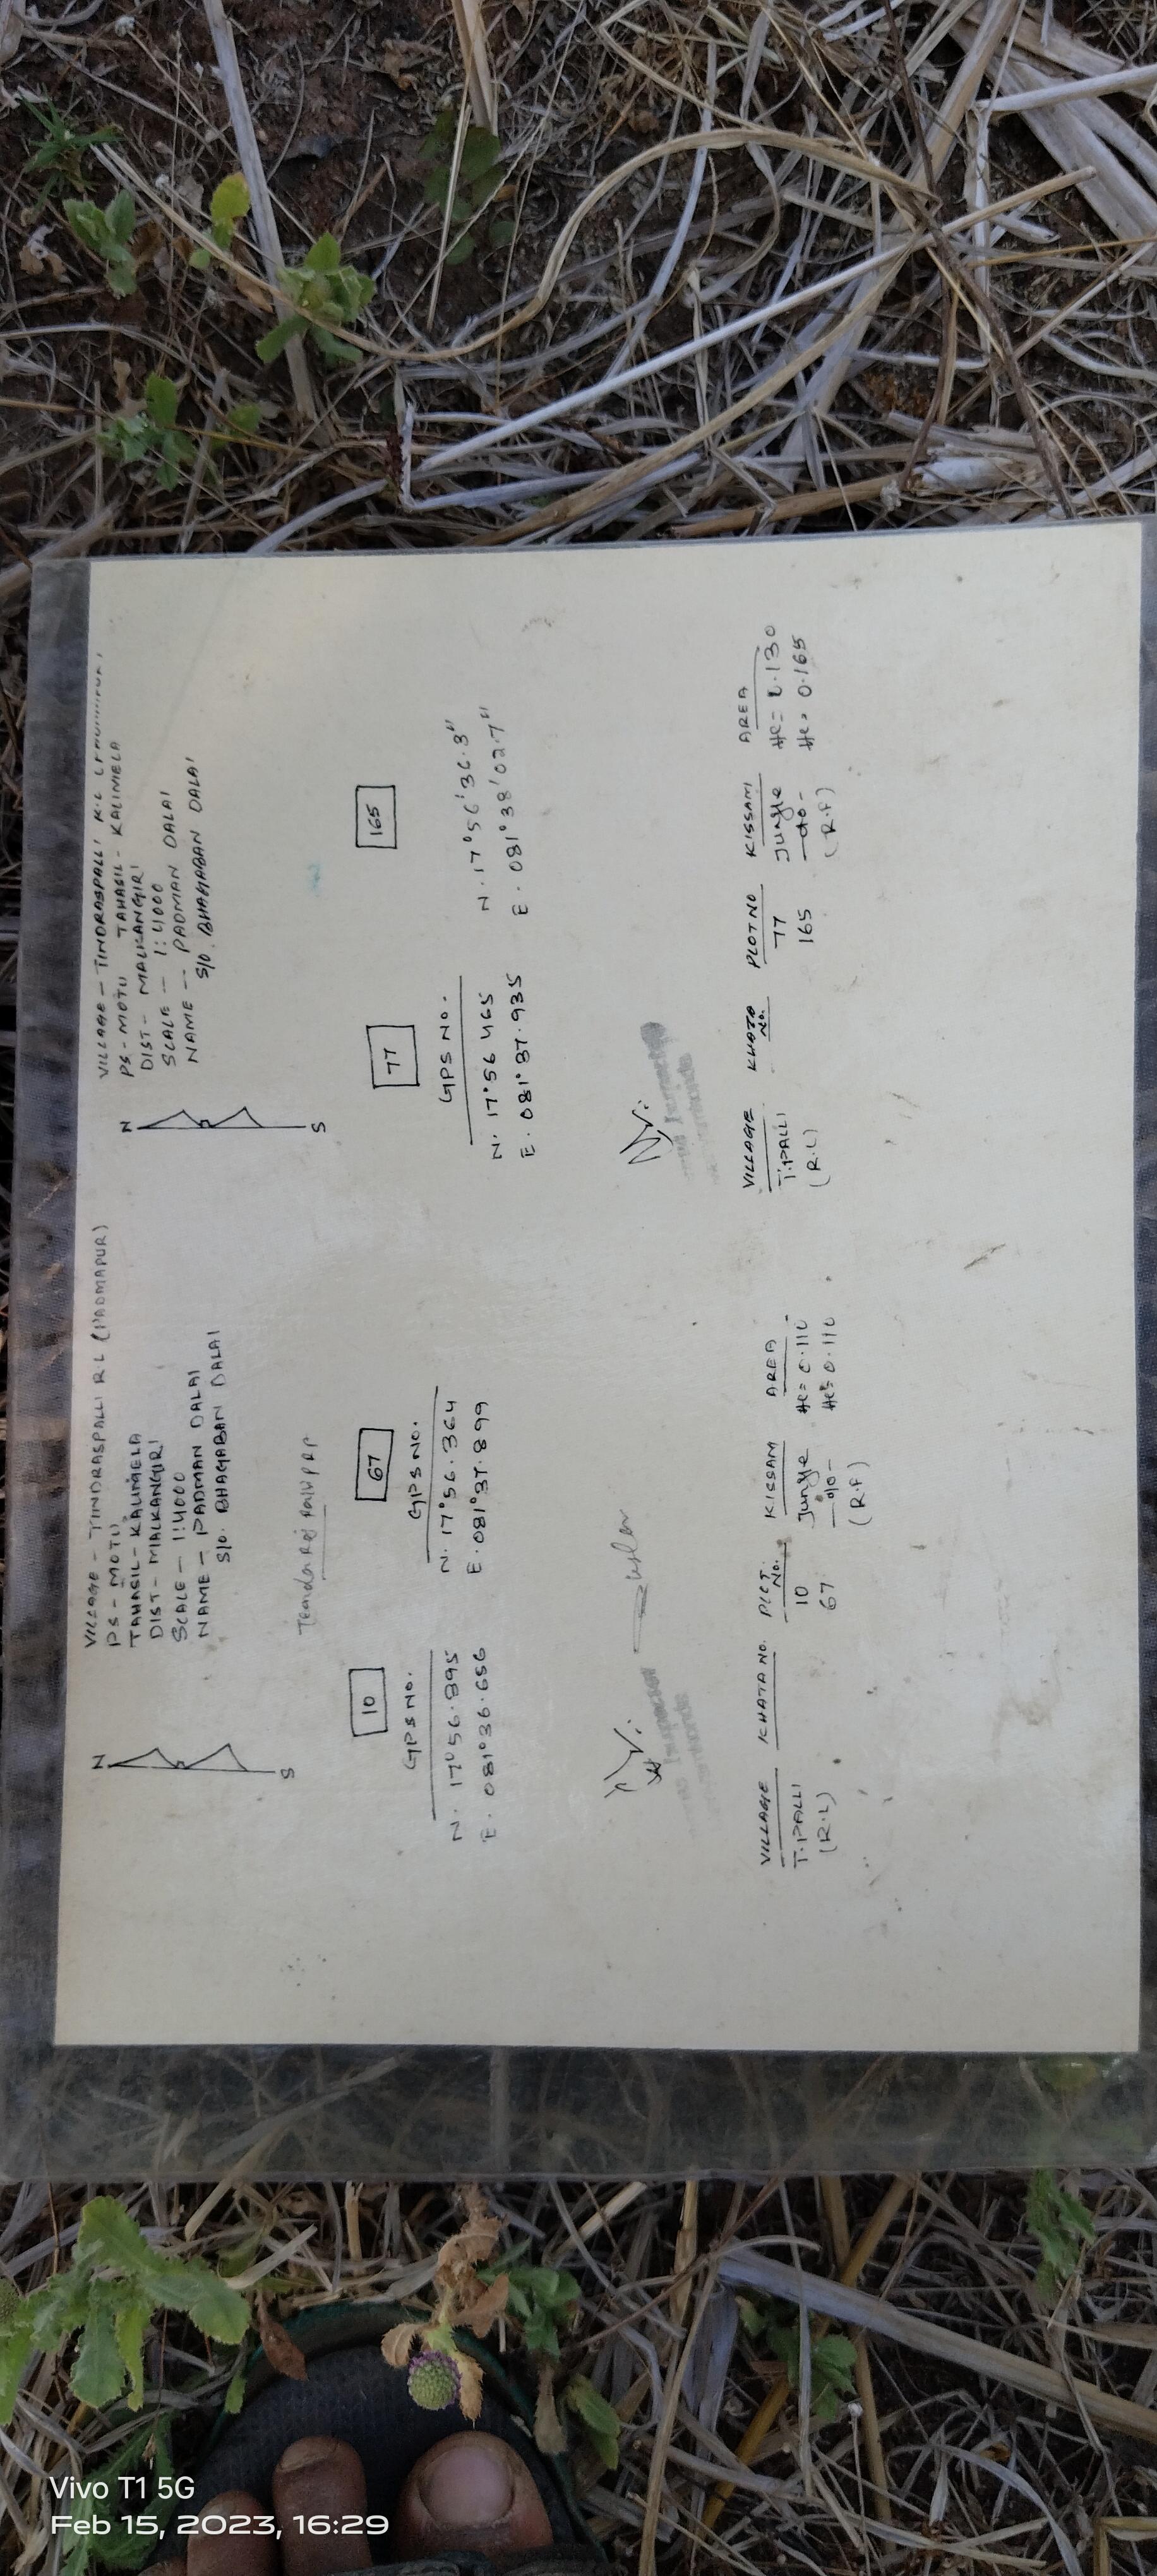 VILLAGE - TINDRASPALLI R.L (PADMAPUR)
PS - MOTU
TAHASIL - KALIMELA
DIST - MALKANGIRI
SCALE - 1:4000
NAME - PADMAN DALAI
S/O. BHAGABAN DALAI
N
S
10
67
GPS NO.
GPS NO.
N. 17°56.895
E. 081°36.656
N. 17°56.364
E. 081°37.899
VILLAGE KHATA NO. PLOT NO. KISSAM AREA
T.PALLI 10 Jungle He= 0.110
(R.L) 67 -do- He= 0.110
(R.F)
VILLAGE - TINDRASPALLI R.L
PS - MOTU TAHASIL - KALIMELA
DIST - MALKANGIRI
SCALE - 1:4000
NAME - PADMAN DALAI
S/O. BHAGABAN DALAI
N
S
77
165
GPS NO.
N. 17°56 465
E. 081°37.935
N. 17°56'36.3"
E. 081°38'02.7"
VILLAGE KHATA NO. PLOT NO KISSAM AREA
T.PALLI 77 Jungle He= 0.130
(R.L) 165 -do- He= 0.165
(R.F)
Vivo T1 5G
Feb 15, 2023, 16:29